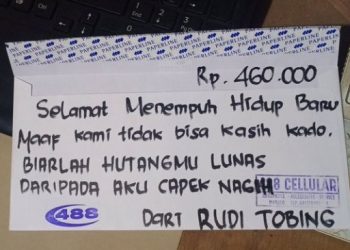 PAPERLINE PAPERLINE PAPERLINE PAPERLINE
Rp. 460.000
Selamat Menempuh Hidup Baru
Maaf kami tidak bisa kasih kado.
BIARLAH HUTANGMU LUNAS
DARIPADA AKU CAPEK NAGIH
8 CELLULAR
488
DARI RUDI TOBING